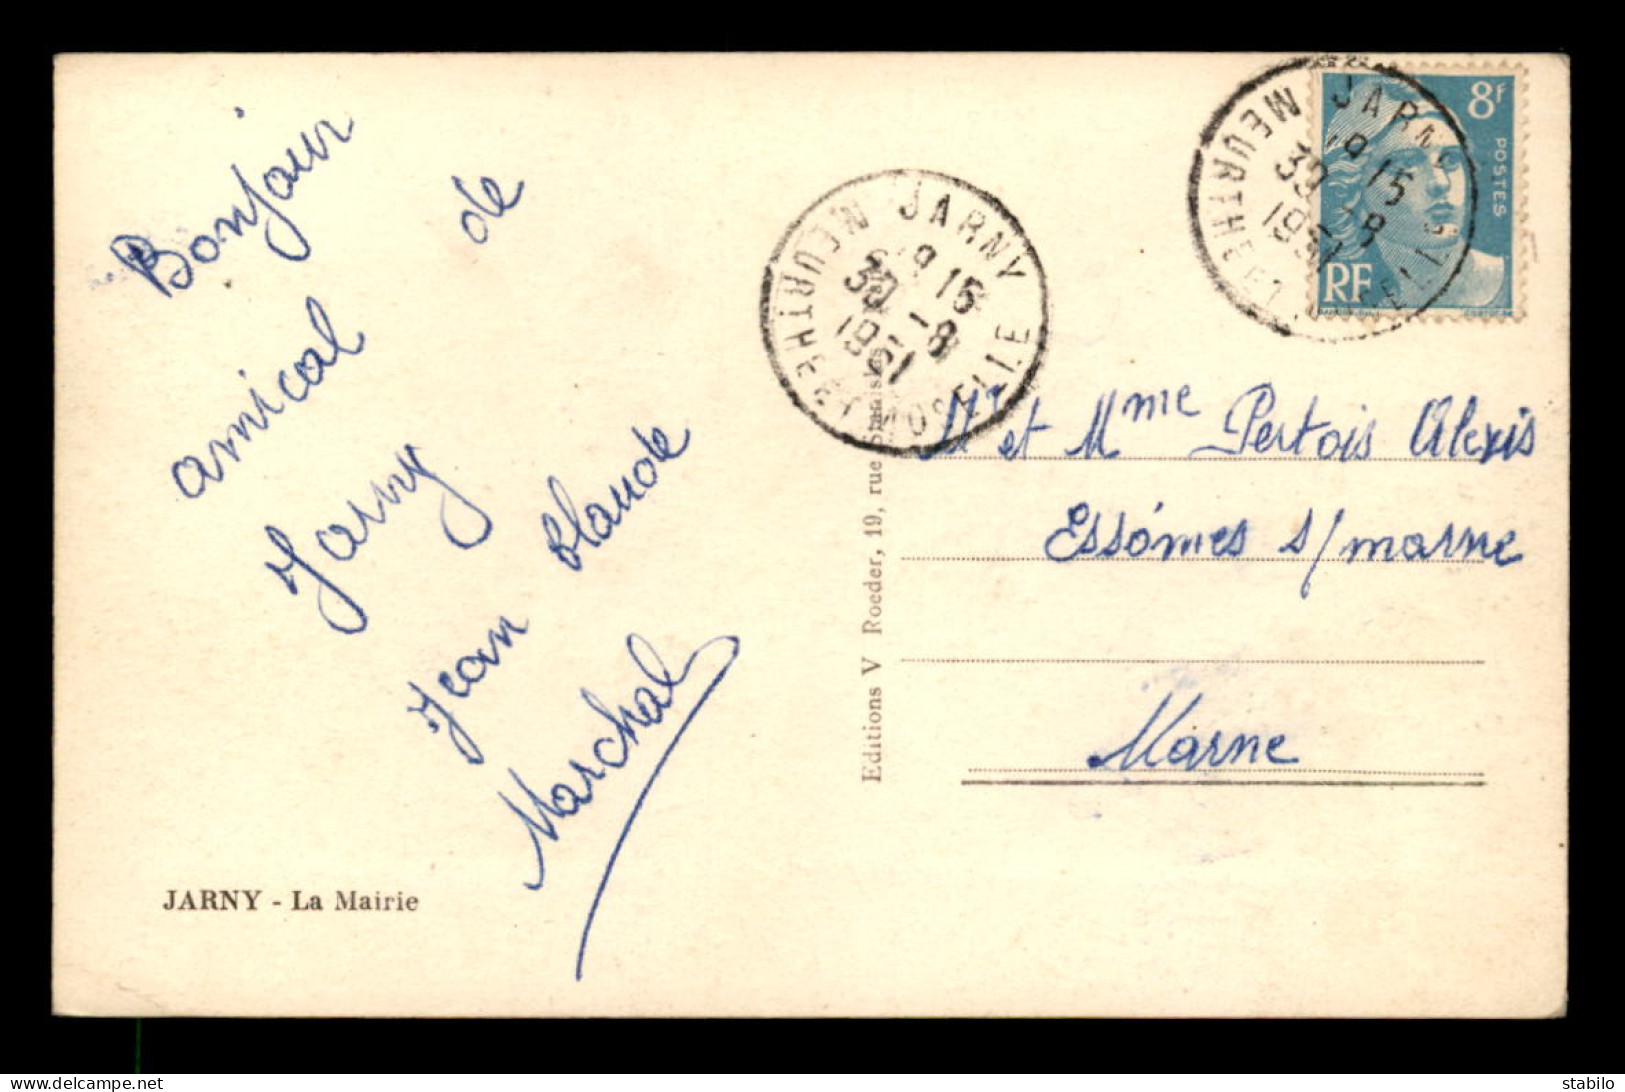 Bonjour
amical de
Jarny
Jean Claude
Marchal
JARNY - La Mairie
Editions V Roeder, 19, rue
JARNY
MEURTHE ET MOSELLE
18 15
30 - 8
1951
JARNY
MEURTHE
18 15
30 - 8
1951
8F
POSTES
RF
Mr et Mme Pertois Alexis
Essômes s/marne
Marne
delcampe.net stabilo